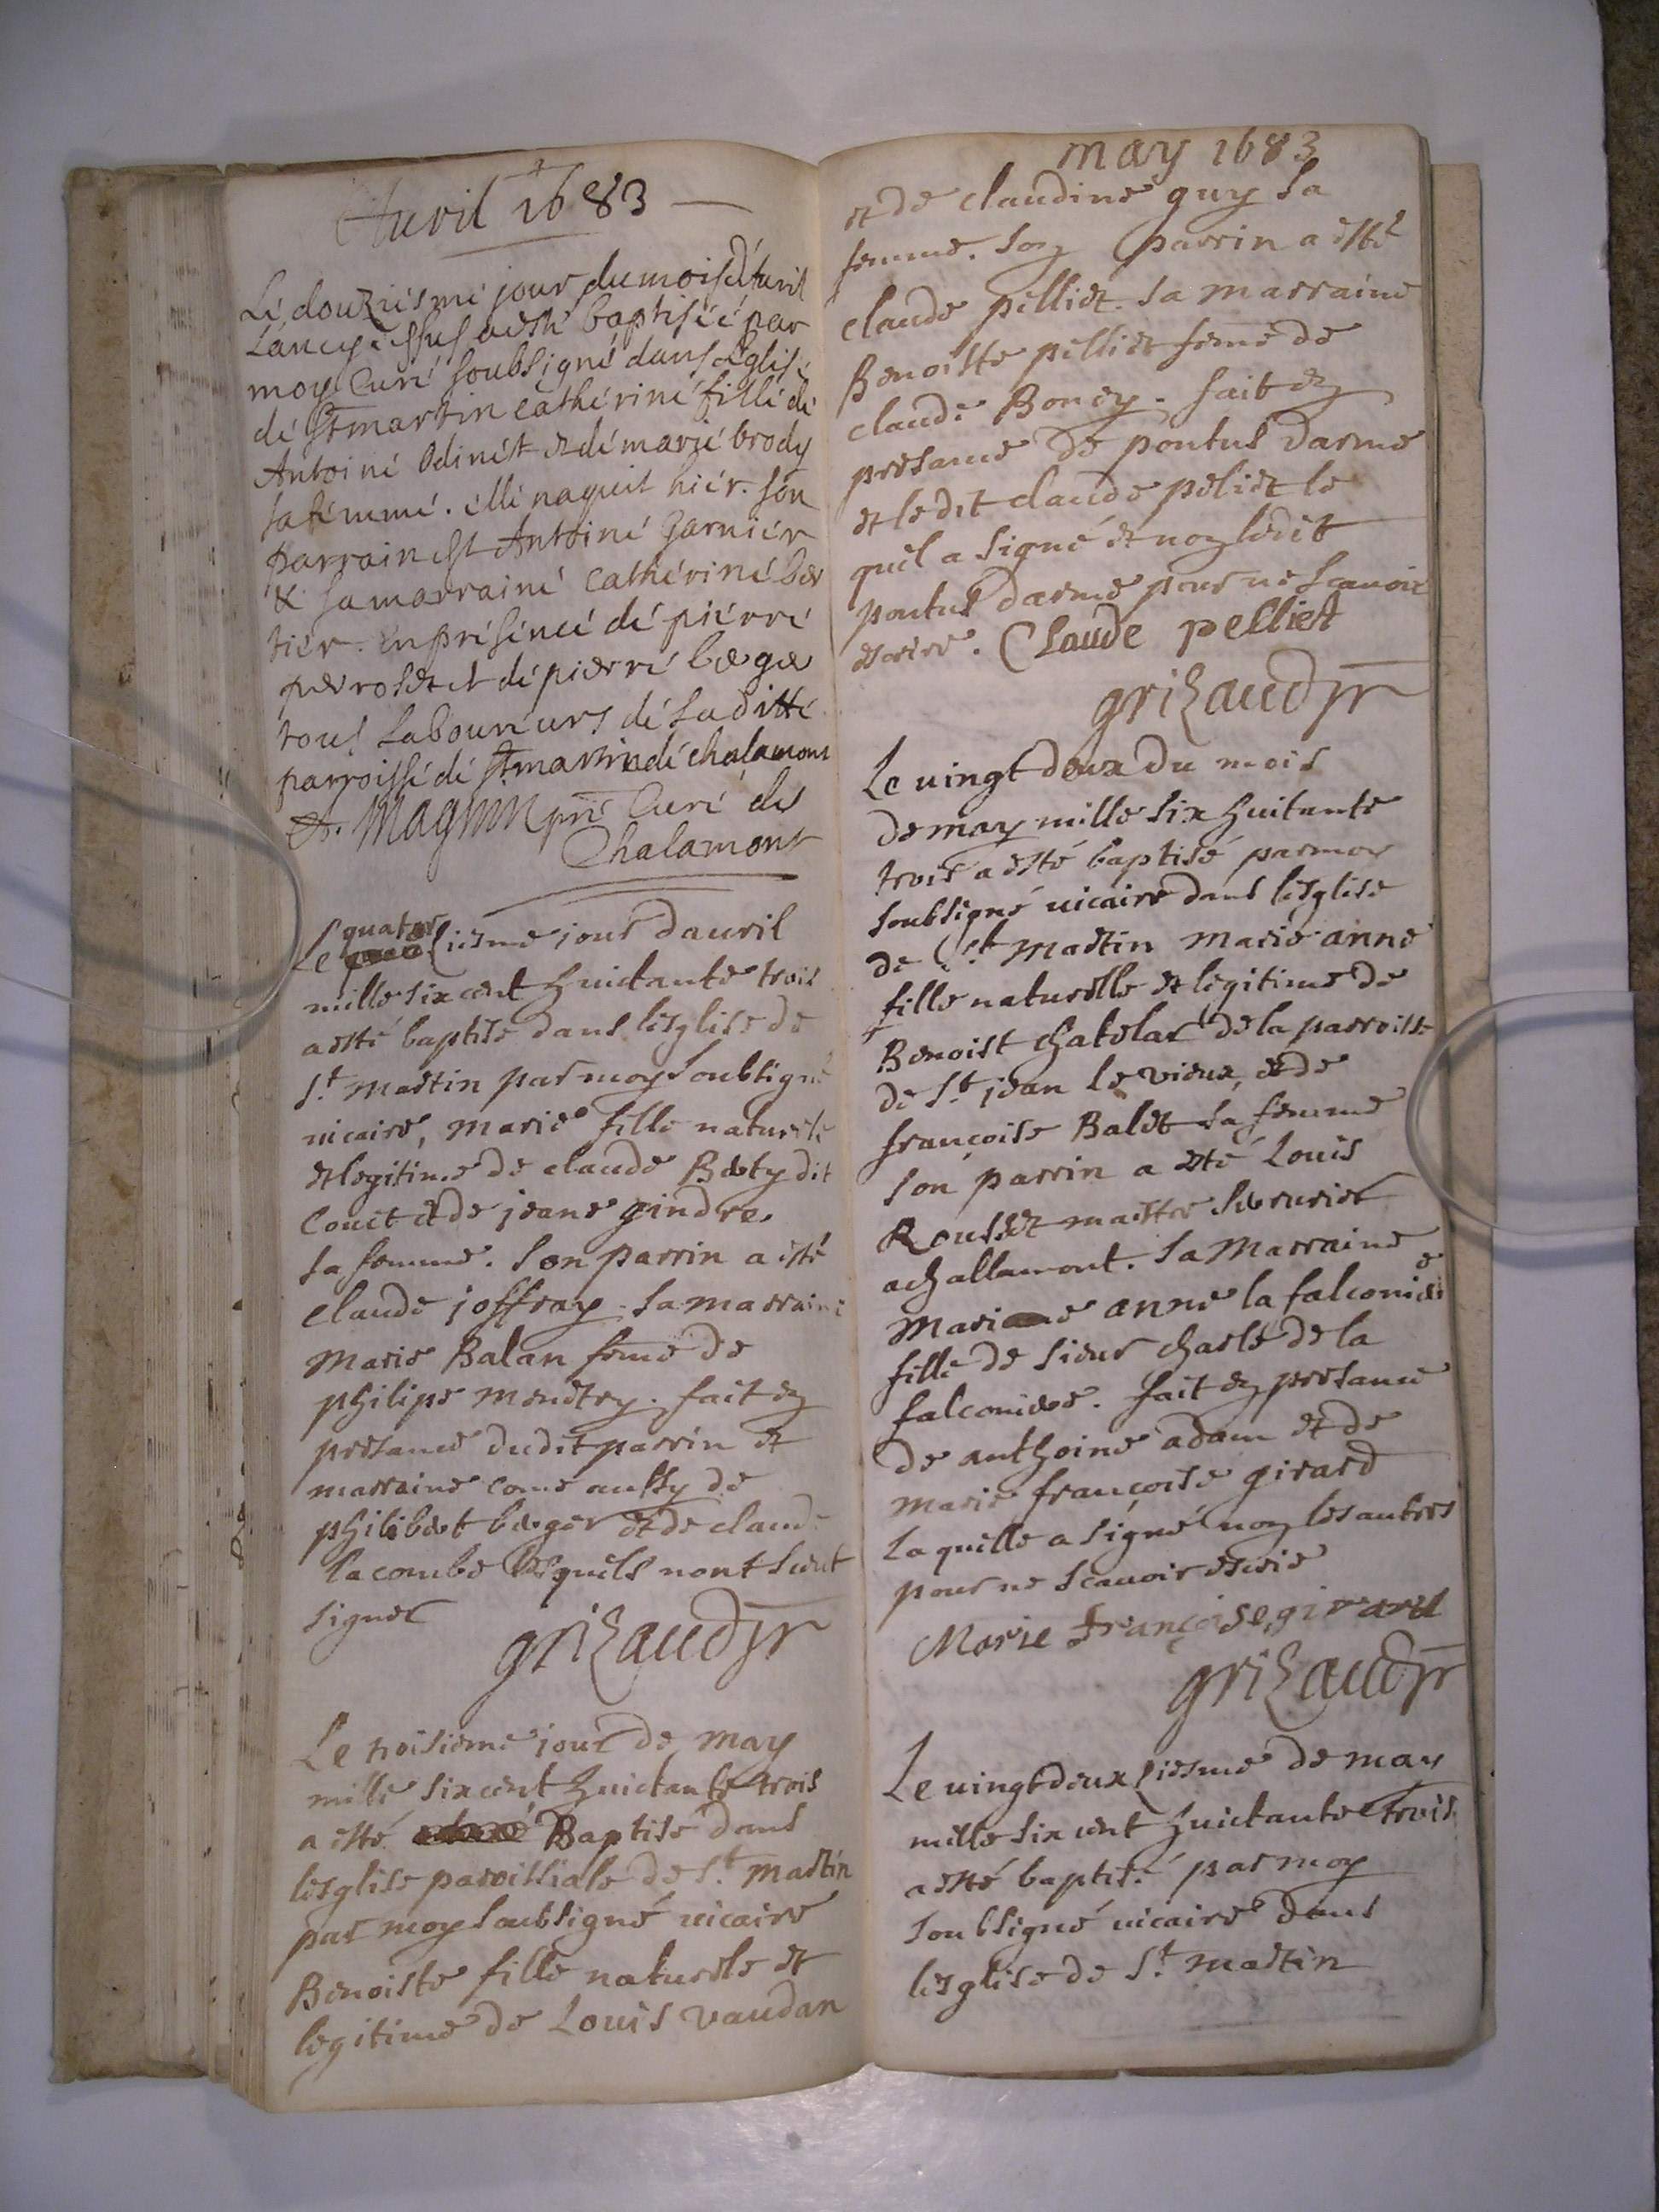 Avril 1683
Le douziesme jour du mois d'Auril
L'an cy dessus a esté baptisée par
moy Curé soubsigné dans L'Eglise
de St martin catherine fille de
Antoine Odinet et de marie brody
sa femme. elle naquit hier. son
parrain est Antoine Garnier
& sa marraine Catherine ber
tier. En presence de pierre
perroset et de pierre berger
tous Laboureurs de La ditte
parroisse de St martin de chalamont
A. Magnin pre Curé de
Chalamont
quator
Le ziesme jour dauril
mille six cent huictante trois
a esté baptise dans lesglise de
St. martin par moy soubsigné
uicaire, marie fille naturele
et legitime de claude Berty dit
Couet et de jeane gindre
sa femme. Son parrin a esté
Claude joffray. Sa marraine
Marie Balan feme de
philipe mendtry. fait en
presance dudit parrin et
marraine come aussy de
philibert berger et de claude
Lacombe lesquels nont sceut
signer
grizaud pr
Le troisieme jour de may
mille six cent huictante trois
a esté Baptise dans
lesglise paroissiale de St. martin
par moy soubsigné uicaire
Benoiste fille naturele et
legitime de Louis vaudan
may 1683
et de claudine guy sa
femme. Son parrin a esté
claude pelliet. Sa marraine
Benoiste pelliet feme de
claude Boncy. fait en
presance de pontus darme
et ledit claude peliet le
quel a signé et non ledit
pontus darme pour ne scauoir
escrire. Claude pelliet
grizaud pr
Le uingt deux du mois
de may mille six huitante
trois a esté baptisé par moy
soubsigné uicaire dans lesglise
de St martin marie anne
fille naturelle et legitime de
Benoist chatelar de la parroisse
de St. jean le vieux, et de
françoise Balet sa femme
son parrin a esté Louis
Rousset maistre serrurier
a challamont. Sa Marraine
Marie anne la falconiere
fille de sieur charle de la
falconiere. fait en presance
de anthoine adam et de
marie françoise girard
Laquelle a signé non les autres
pour ne scauoir escrire
Marie françoise girard
grizaud pr
Le uingtdeuxziesme de may
mille six cent huictante trois
a esté baptisé par moy
soubsigné uicaire dans
lesglise de St. martin